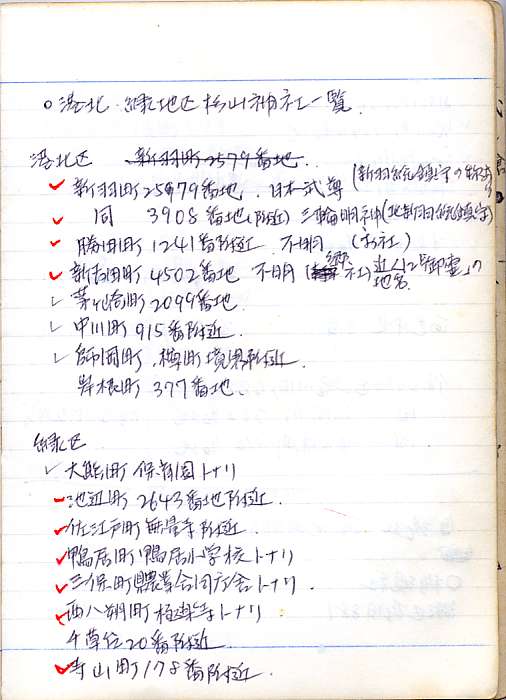 ○港北.緑地区杉山神社一覧.
港北区 新羽町2579番地.
✓新羽町25979番地. 日本武尊(新羽総鎮守の
✓同 3908番地(附近) 三輪明神(北新羽総鎮守)
✓勝田町1241番附近 不明 (郷社)
✓新吉田町4502番地 不明 (郷社)近くに「御霊」の地名
✓茅ヶ崎町2099番地.
✓中川町915番附近
✓師岡町.樽町境界附近.
岸根町377番地.
緑区
✓大熊町保育園トナリ
✓池辺町2643番地附近.
✓佐江戸町無量寺附近.
✓鴨居町鴨居小学校トナリ
✓三保町農業合同庁舎トナリ.
✓西八朔町極楽寺トナリ
千草台20番附近
✓寺山町178番附近.